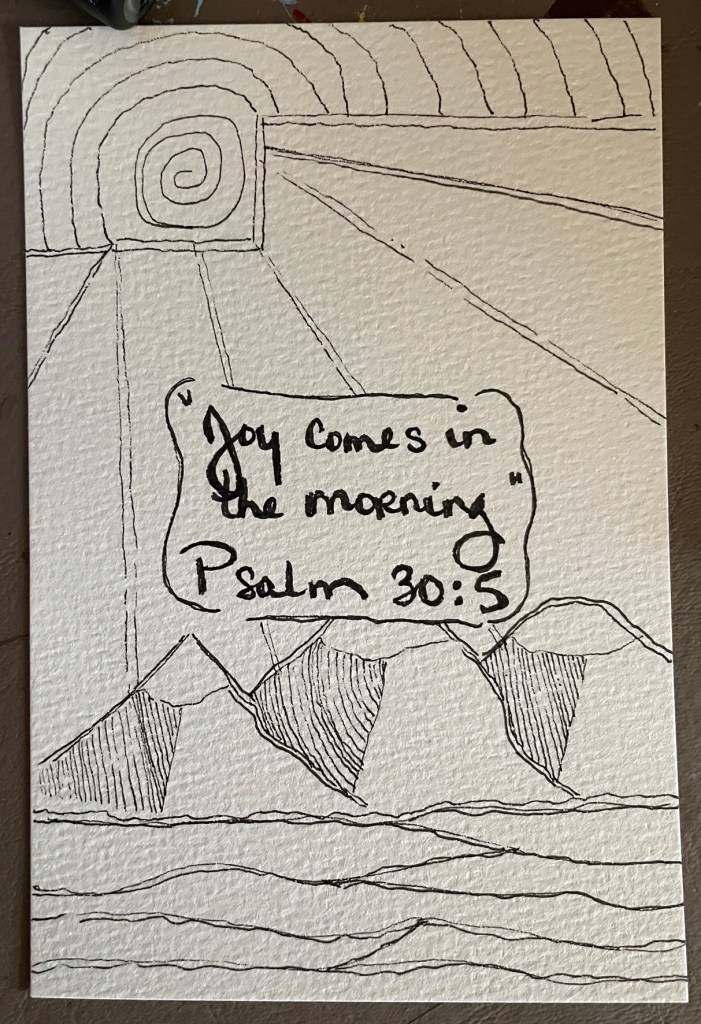 "Joy comes in
the morning"
Psalm 30:5